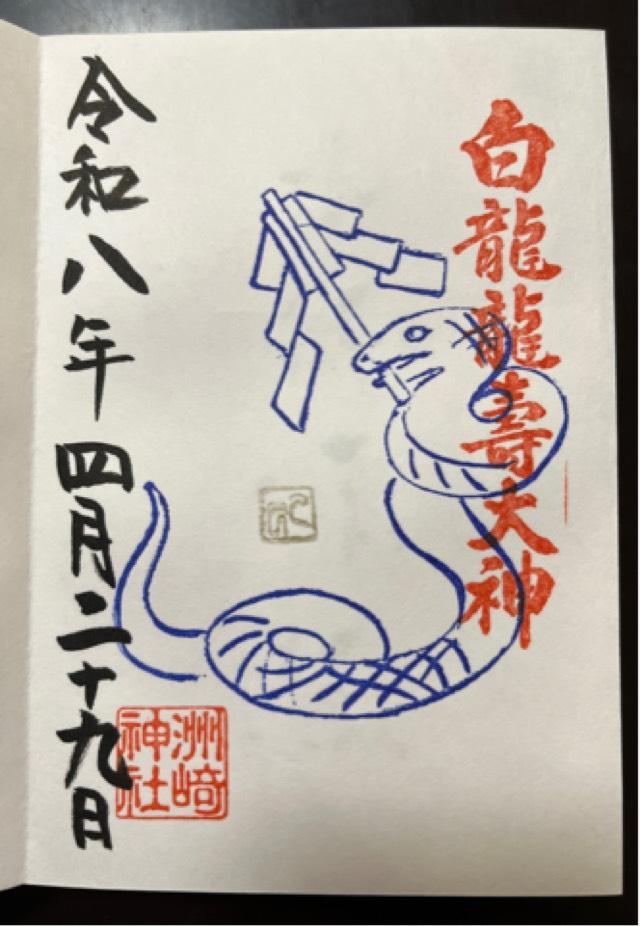 白龍龍壽大神
令和八年四月二十九日
洲崎
神社